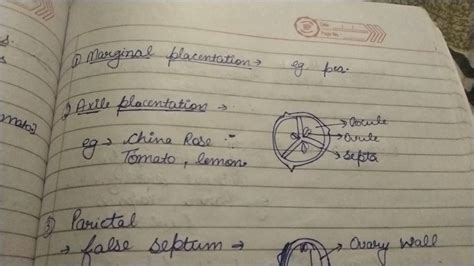 ① Marginal placentation → eg pea.
② Axile placentation →
Locule
Ovule
Septa
eg → China Rose :-
Tomato, lemon.
③ Parietal
→ false septum →
Ovary Wall